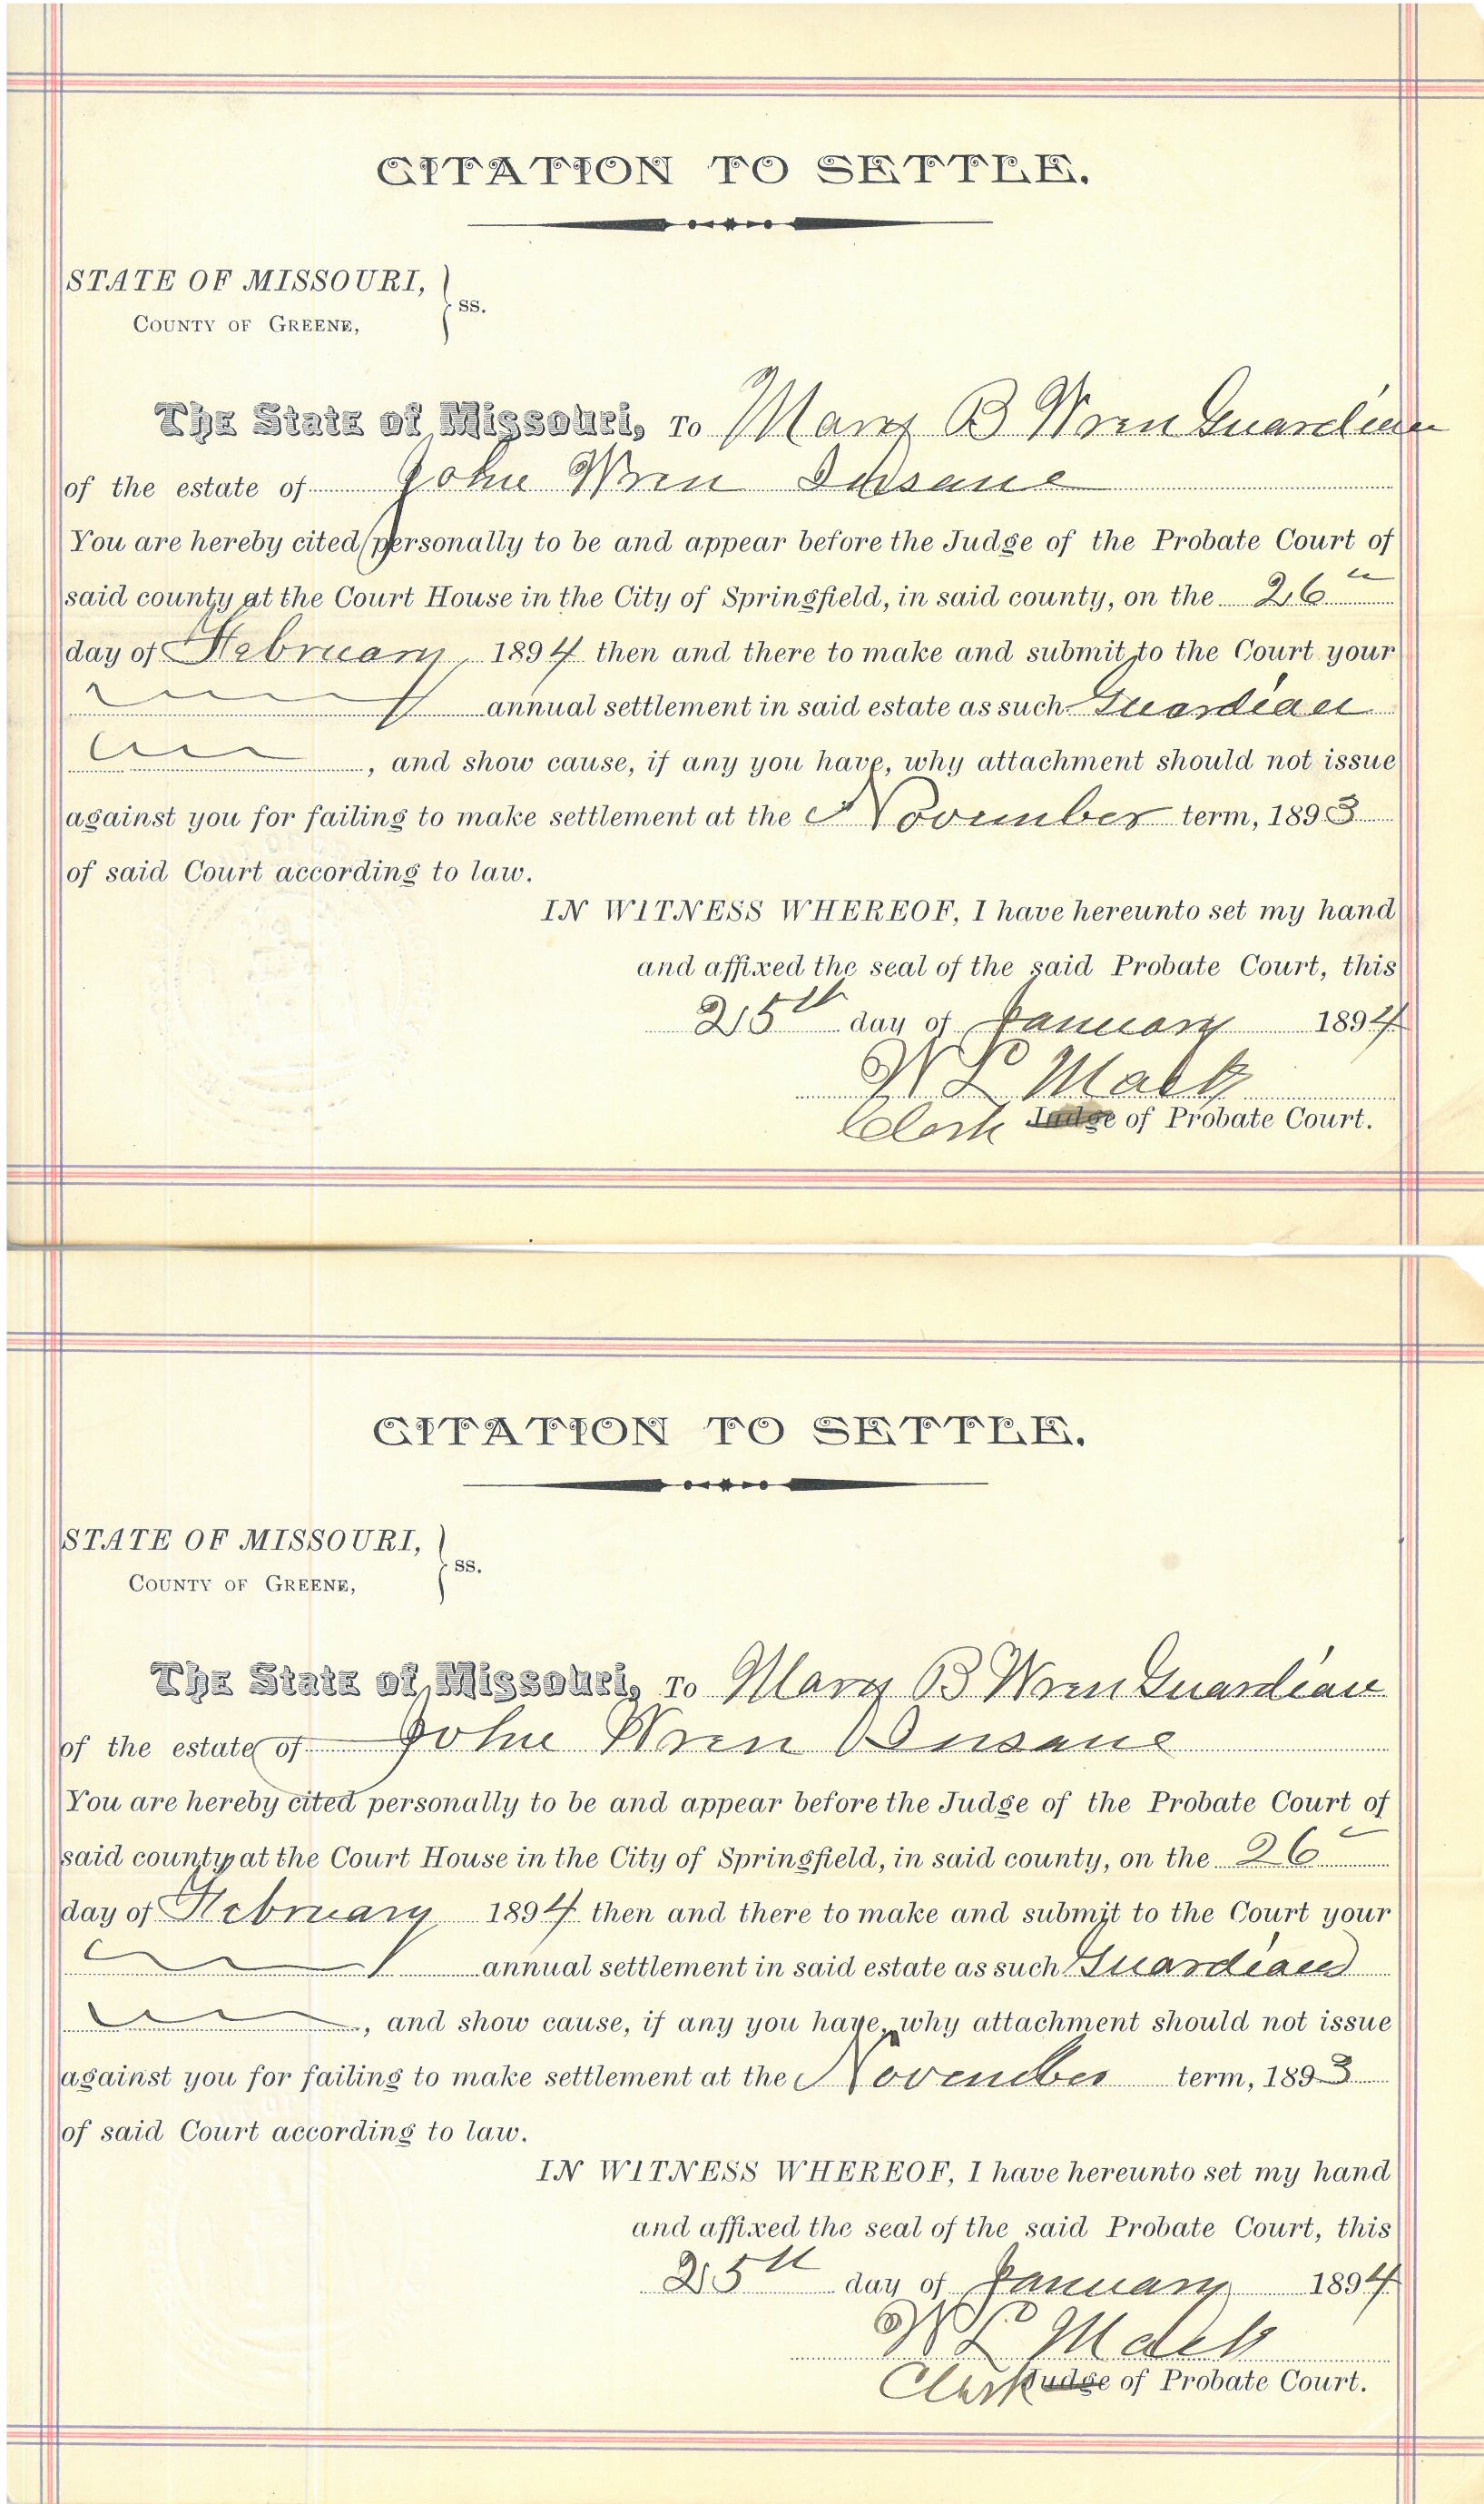 CITATION TO SETTLE.
STATE OF MISSOURI,
COUNTY OF GREENE, } ss.
The State of Missouri, To Mary B Wren Guardian
of the estate of John Wren Insane
You are hereby cited personally to be and appear before the Judge of the Probate Court of
said county at the Court House in the City of Springfield, in said county, on the 26th
day of February 1894 then and there to make and submit to the Court your
annual settlement in said estate as such Guardian
, and show cause, if any you have, why attachment should not issue
against you for failing to make settlement at the November term, 1893
of said Court according to law.
IN WITNESS WHEREOF, I have hereunto set my hand
and affixed the seal of the said Probate Court, this
25th day of January 1894
W L Mack
Clerk Judge of Probate Court.
CITATION TO SETTLE.
STATE OF MISSOURI,
COUNTY OF GREENE, } ss.
The State of Missouri, To Mary B Wren Guardian
of the estate of John Wren Insane
You are hereby cited personally to be and appear before the Judge of the Probate Court of
said county at the Court House in the City of Springfield, in said county, on the 26
day of February 1894 then and there to make and submit to the Court your
annual settlement in said estate as such Guardian
, and show cause, if any you have, why attachment should not issue
against you for failing to make settlement at the November term, 1893
of said Court according to law.
IN WITNESS WHEREOF, I have hereunto set my hand
and affixed the seal of the said Probate Court, this
25th day of January 1894
W L Mack
Clerk Judge of Probate Court.